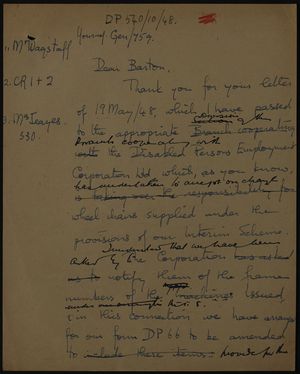 DP 540/10/48.
Yours of. Gen/759.
1. Mr Wagstaff
Dear Barton,
2. CR 1 + 2
Thank you for your letter
of 19 May/48, which I have passed
3. Mr Jeayes
530.
Division
to the appropriate Branch cooperating
Branch cooperating with
with the Disabled Persons Employment
Corporation Ltd which, as you know,
has undertaken to
is taking over the responsibility for
wheel chairs supplied under the
provisions of our Interim Scheme.
I understand that we have been
asked by the Corporation
to notify them of the frame
numbers of the machines issued,
in this connection we have
for our form DP 66 to be amended
to include these items. provide for the